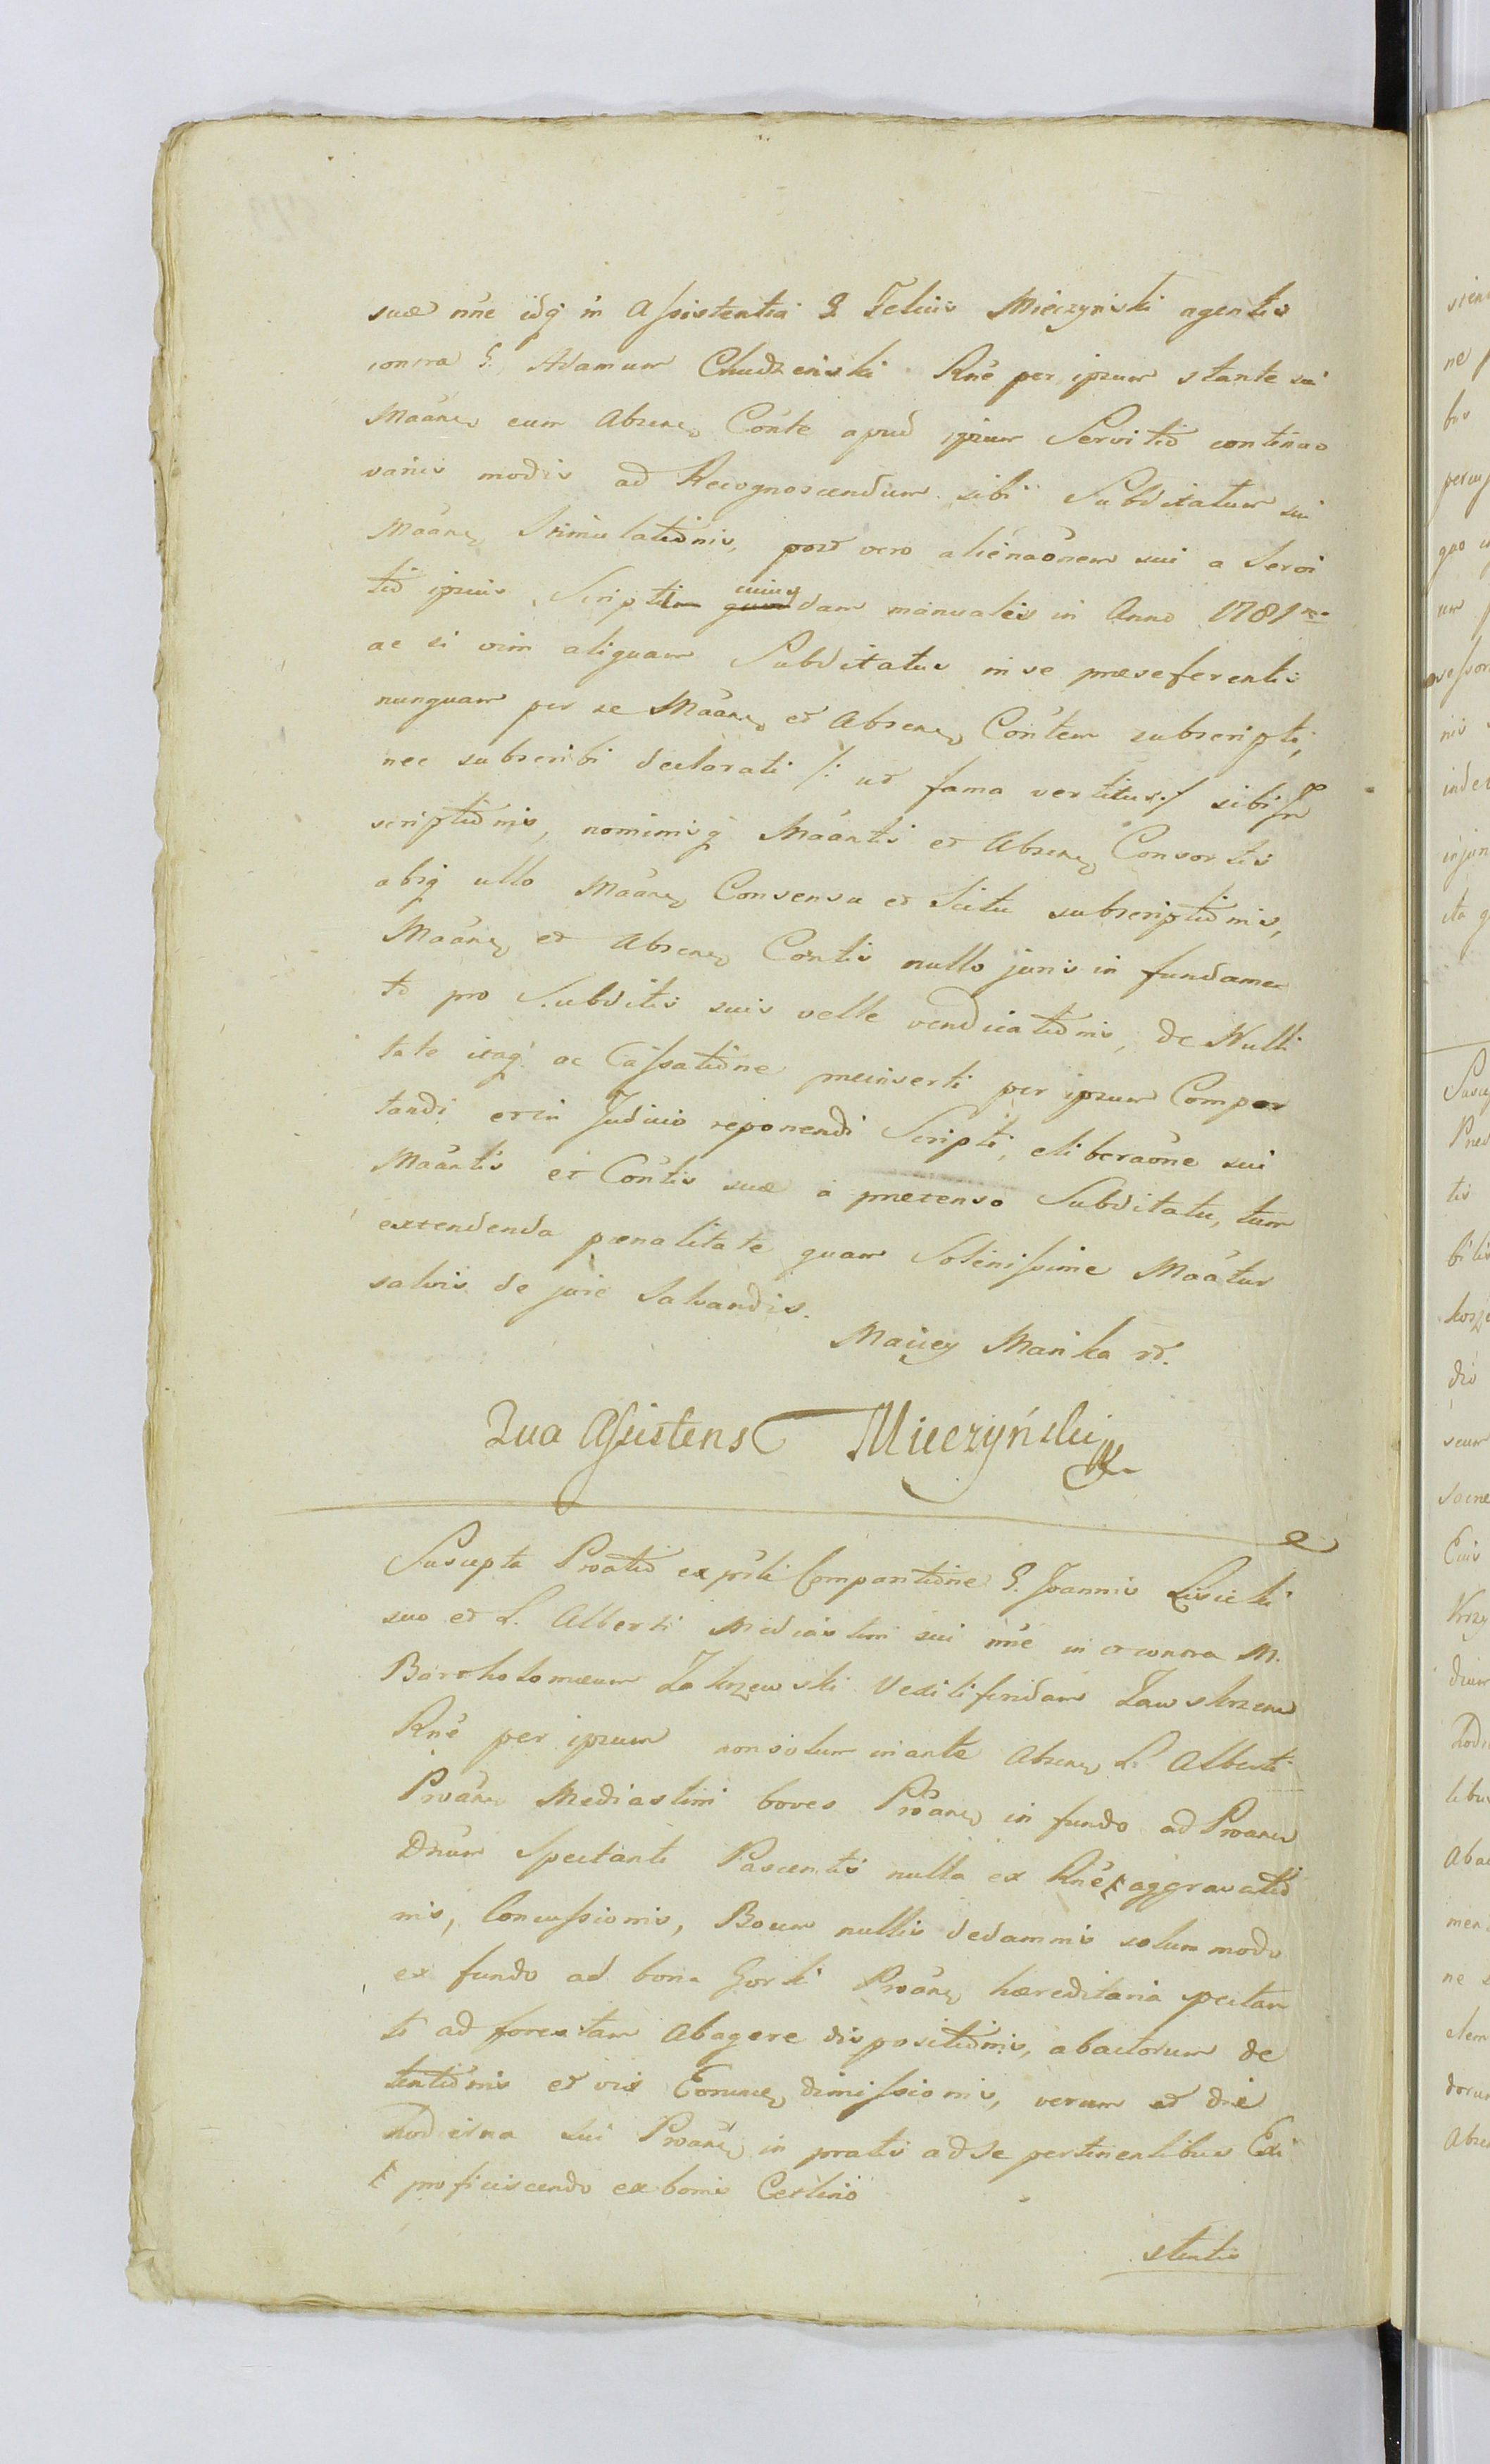 suæ nñe idq in Assistentia G. Felicis Mieczyński agentis
contra G. Adamum Chudzeński Rnẽ per ipsum stante sui
Mãanẽ eum Absenẽ Cõnte apud ipsum Servitio continao
variis modis ad Recognoscendum sibi Subditatum sui
Mãanẽ Stimulationis, post vero alienaõnem sui a Servi
tio ipsius, Scripti cuius dam manualis in Anno 1781mo
ac si vim aliquam Subditatus in se præseferentis
nunquam per se Mãanẽ et Absenẽ Cõntem subscripti,
nec subscribi declarati /: ut fama vertitur :/ sibi In
scriptionis, nominisq Mãantis et Absenẽ Consortis
absq ullo Mãanẽ Consensu et Scitu subscriptionis,
Mãanẽ et Absenẽ Contis nullo juris in fundamen
to pro Subditis suis velle vendicationis, de Nulli
tate itaq ac Cassatione præinserti per ipsum Compor
tandi et in Judicio reponendi Scripti, eliberaõne sui
Mãantis et Cõntis suæ a prætenso Subditatu, tum
extendenda pœnalitate quam Solenissime Mãatur
salvis de jure Salvandis.
Maciey Marika rd.
Qua Assistens Mieczyński
Suscepta Proatio ex pñti Comparitione G. Joannis Lisicki
suo et L. Alberti Mediastini sui nñe in et contra M.
Bartholomæum Zakrzewski Vexiliferidam Zawskrzen
Rnẽ per ipsum non solum inante Absenẽ L. Alberti
Proanẽ Mediastini boves Proanẽ in fundo ad Proanẽ
Dnum Spectanti Pascentis nulla ex Rnẽ aggravatio
nis, Concussionis, Boum nullis dedamnis solum modo
ex fundo ad bona Gorki Proanẽ hæreditaria spectan
ti ad forestam Abagere dispositionis, abactorum de
tentionis et vix Eorumq dimissionis, verum et die
hodierna sui Proanẽ in pratis ad se pertinentibus Exi
proficiscendo ex bonis Cestino
stentis